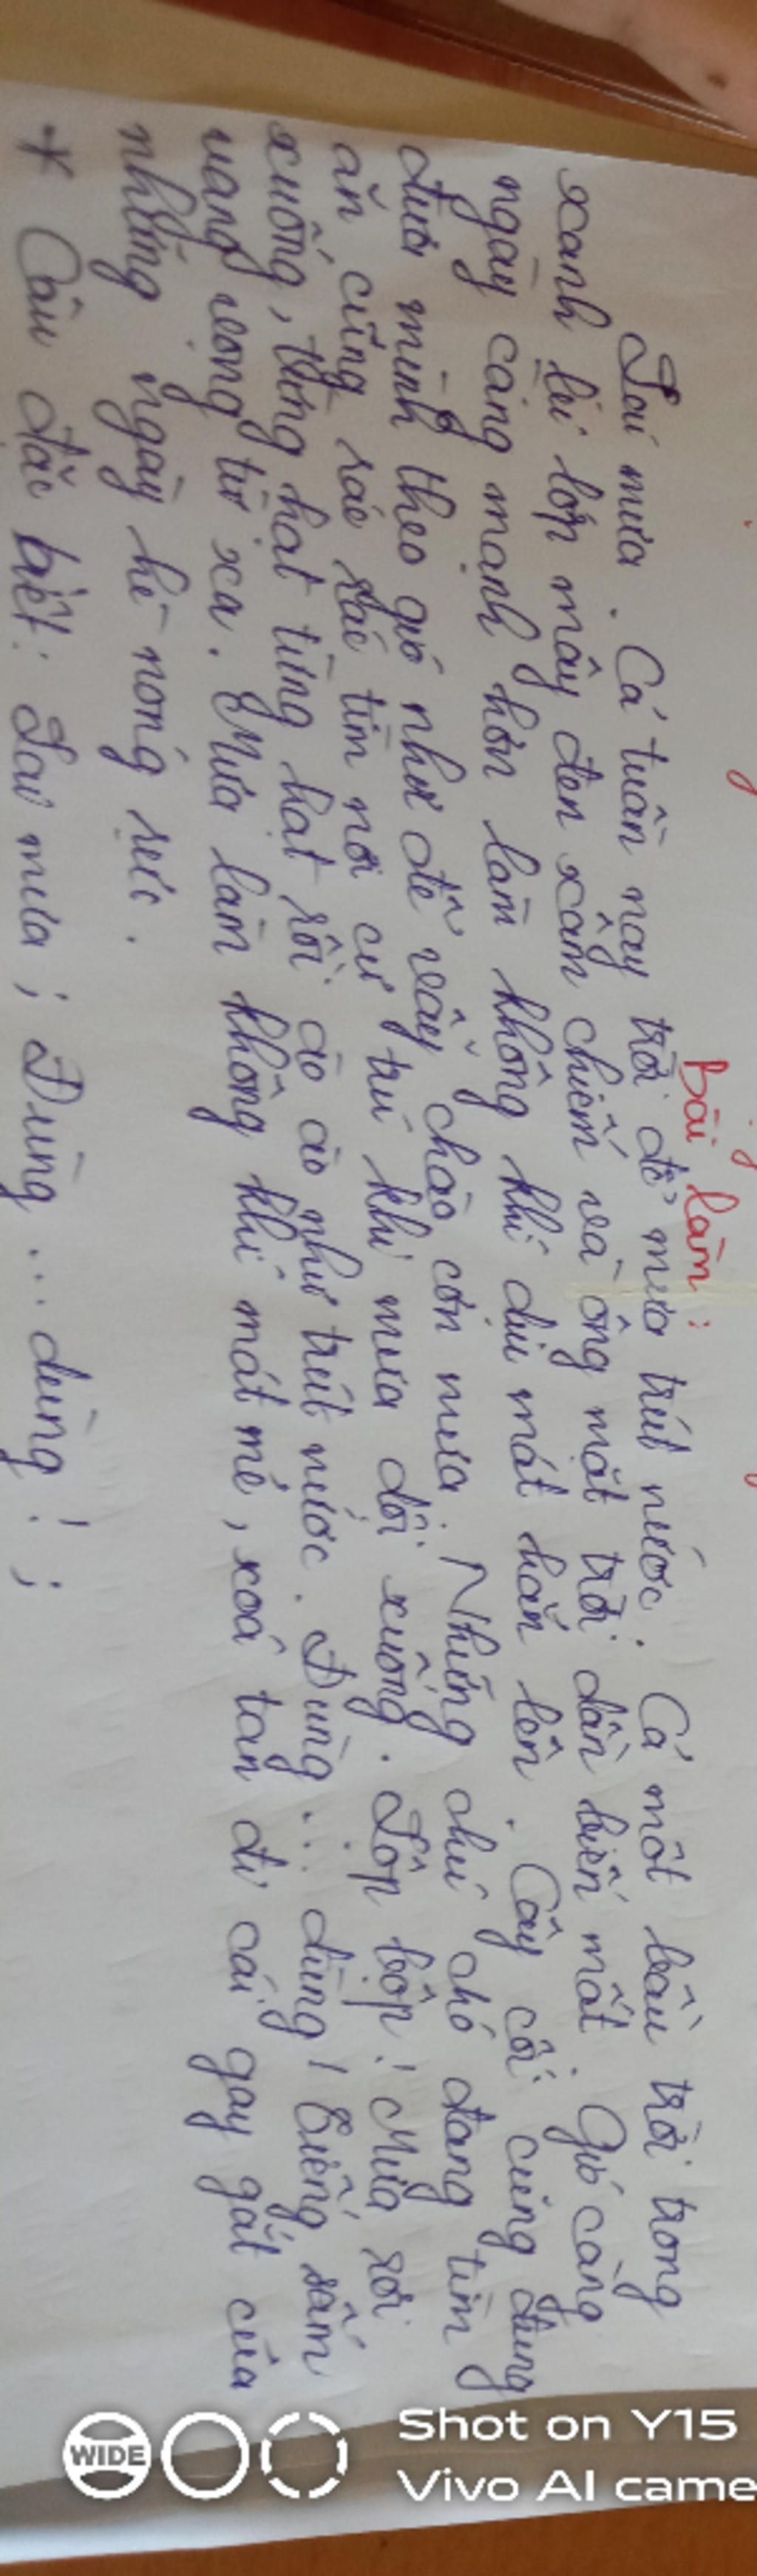 Bài làm:
Lại mưa. Cả tuần nay trời đổ mưa trút nước. Cả một bầu trời trong
xanh bị lớp mây đen xâm chiếm và ông mặt trời dần biến mất. Gió càng
ngày càng mạnh hơn làm không khí dịu mát hẳn lên. Cây cối cũng đung
đưa mình theo gió như để vẫy chào cơn mưa. Những chú chó đang tìm
ăn cũng ráo riết tìm nơi cư trú khi mưa dội xuống. Lộp bộp! Mưa rơi
xuống, từng hạt từng hạt rồi ào ào như trút nước. Đùng... đùng! Tiếng sấm
vang vọng từ xa. Mưa làm không khí mát mẻ, xoá tan đi cái gay gắt của
những ngày hè nóng rực.
* Câu đặc biệt: Lại mưa; Đùng... đùng!;
Shot on Y15
Vivo AI came
WIDE